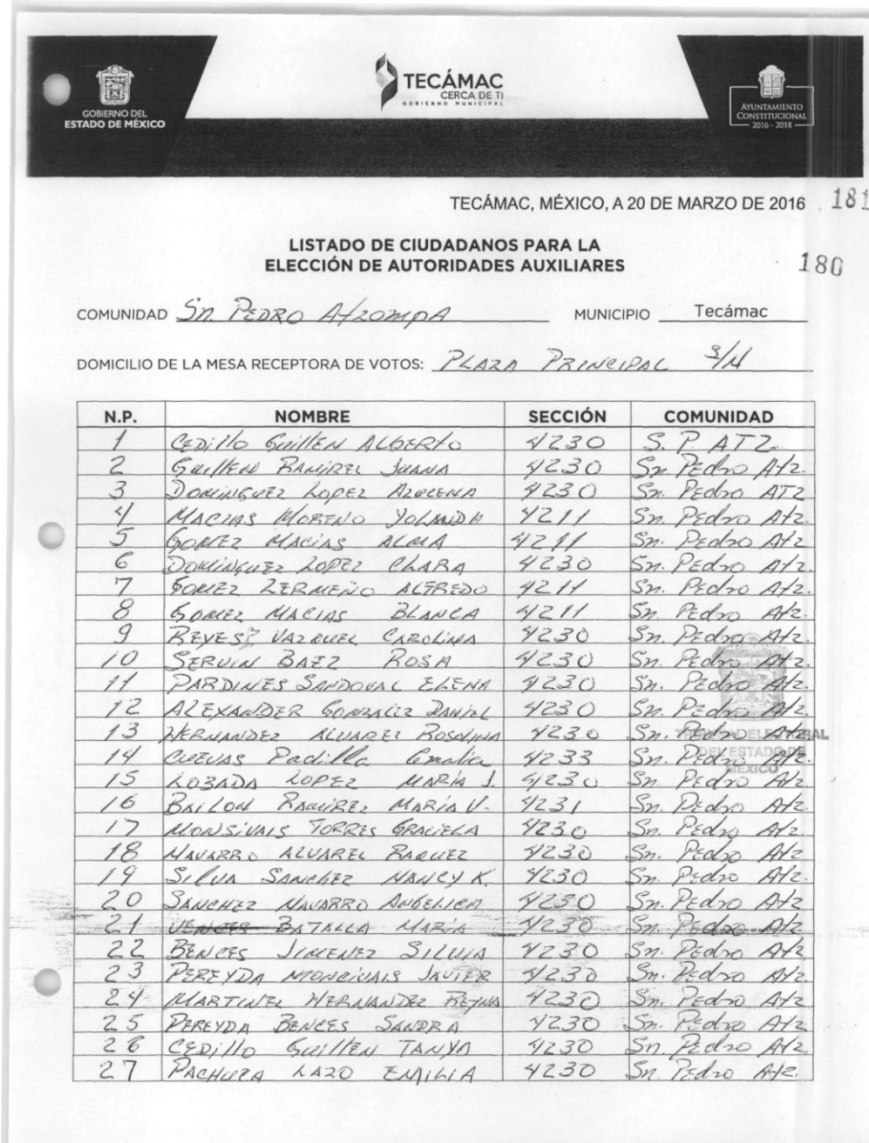 GOBIERNO DEL
ESTADO DE MÉXICO
TECÁMAC
CERCA DE TI
GOBIERNO MUNICIPAL
AYUNTAMIENTO
CONSTITUCIONAL
2016 - 2018
TECÁMAC, MÉXICO, A 20 DE MARZO DE 2016 181
LISTADO DE CIUDADANOS PARA LA
ELECCIÓN DE AUTORIDADES AUXILIARES
180
COMUNIDAD Sn. PEDRO AtzompA MUNICIPIO Tecámac
DOMICILIO DE LA MESA RECEPTORA DE VOTOS: PLAZA PRINCIPAL S/N
N.P. NOMBRE SECCIÓN COMUNIDAD
1 CEDillo GuillEN ALBERTO 4230 S. P. ATZ.
2 GuillEN RAMIREZ JUANA 4230 Sn. PEdro Atz.
3 DOMINGUEZ LOPEZ AZUCENA 4230 Sn. PEdro ATZ
4 MACIAS MORENO YOLANDA 4211 Sn. PEdro Atz.
5 GOMEZ MACIAS ALMA 4211 Sn. PEdro Atz.
6 DOMINGUEZ LOPEZ CLARA 4230 Sn. PEdro Atz.
7 GOMEZ ZERMEÑO ALFREDO 4211 Sn. PEdro Atz.
8 GOMEZ MACIAS BLANCA 4211 Sn. PEdro Atz.
9 REYES VAZQUEZ CAROLINA 4230 Sn. PEdro Atz.
10 SERVIN BAEZ ROSA 4230 Sn. PEdro Atz.
11 PARDINES SANDOVAL ELENA 4230 Sn. PEdro Atz.
12 ALEXANDER GONZALEZ DANIEL 4230 Sn. PEdro Atz.
13 HERNANDEZ ALVAREZ ROSALINA 4230 Sn. PEdro Atz.
DEL ESTADO DE
MÉXICO
14 CUEVAS Padilla 4233 Sn. PEdro Atz.
15 LOZADA LOPEZ MARÍA J. 4230 Sn. PEdro Atz.
16 BAILON RAMIREZ MARÍA V. 4231 Sn. PEdro Atz.
17 MONSIVAIS TORRES GRACIELA 4230 Sn. PEdro Atz.
18 NAVARRO ALVAREZ RAQUEL 4230 Sn. PEdro Atz.
19 SILVA SANCHEZ NANCY K. 4230 Sn. PEdro Atz.
20 SANCHEZ NAVARRO ANGELICA 4230 Sn. PEdro Atz.
21 VENCES BATALLA MARÍA 4230 Sn. PEdro Atz
22 BENCES JIMENEZ SILVIA 4230 Sn. PEdro Atz.
23 PEREYDA MONCIVAIS JAVIER 4230 Sn. PEdro Atz.
24 MARTINEZ HERNANDEZ REYNA 4230 Sn. PEdro Atz.
25 PEREYDA BENCES SANDRA 4230 Sn. PEdro Atz.
26 CEDillo GuillEN TANYA 4230 Sn. PEdro Atz.
27 PACHUCA LAZO EMILIA 4230 Sn. PEdro Atz.